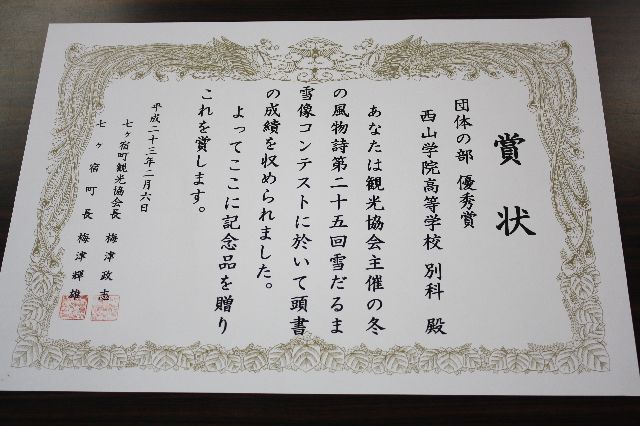 賞状
団体の部 優秀賞
西山学院高等学校 別科 殿
あなたは観光協会主催の冬
の風物詩第二十五回雪だるま
雪像コンテストに於いて頭書
の成績を収められました。
よってここに記念品を贈り
これを賞します。
平成二十三年二月六日
七ヶ宿町観光協会長 梅津政志
七ヶ宿町長 梅津輝雄